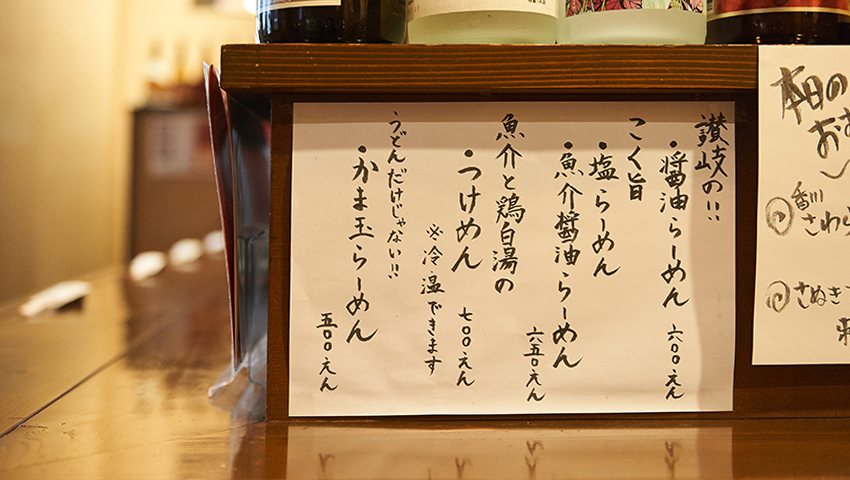 本日の
おす
〜
香川
さわら
さぬき
讃岐の!!
・醤油らーめん 六〇〇えん
こく旨
・塩らーめん
・魚介醤油らーめん 六五〇えん
魚介と鶏白湯の
・つけめん 七〇〇えん
※冷・温できます
うどんだけじゃない!!
・かま玉らーめん 五〇〇えん